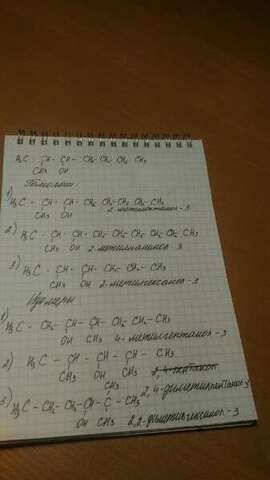 H₃C CH - CH - CH₂ CH₂ CH₂ CH₃
CH₃ OH
Гомологи
1) H₃C - CH - CH - CH₂ CH₂ CH₂ CH₂ CH₃
CH₃ OH 2-метилоктанол-3
2) H₃C - CH - CH - CH₂ CH₂ CH₂ CH₂ CH₂ CH₃
CH₃ OH 2-метилнонанол-3
3) H₃C - CH - CH - CH₂ - CH₂ - CH₃
CH₃ OH 2-метилгексанол-3
Изомеры
1) H₃C - CH₂ - CH - CH - CH₂ - CH₂ - CH₃
OH CH₃ 4-метилгептанол-3
2) H₃C - CH - CH - CH - CH₃
CH₃ OH CH₃
CH₃ 2,4-диметилпентанол-3
3) H₃C - CH₂ - CH₂ - CH - C - CH₃
OH CH₃ 2,2-диметилгексанол-3